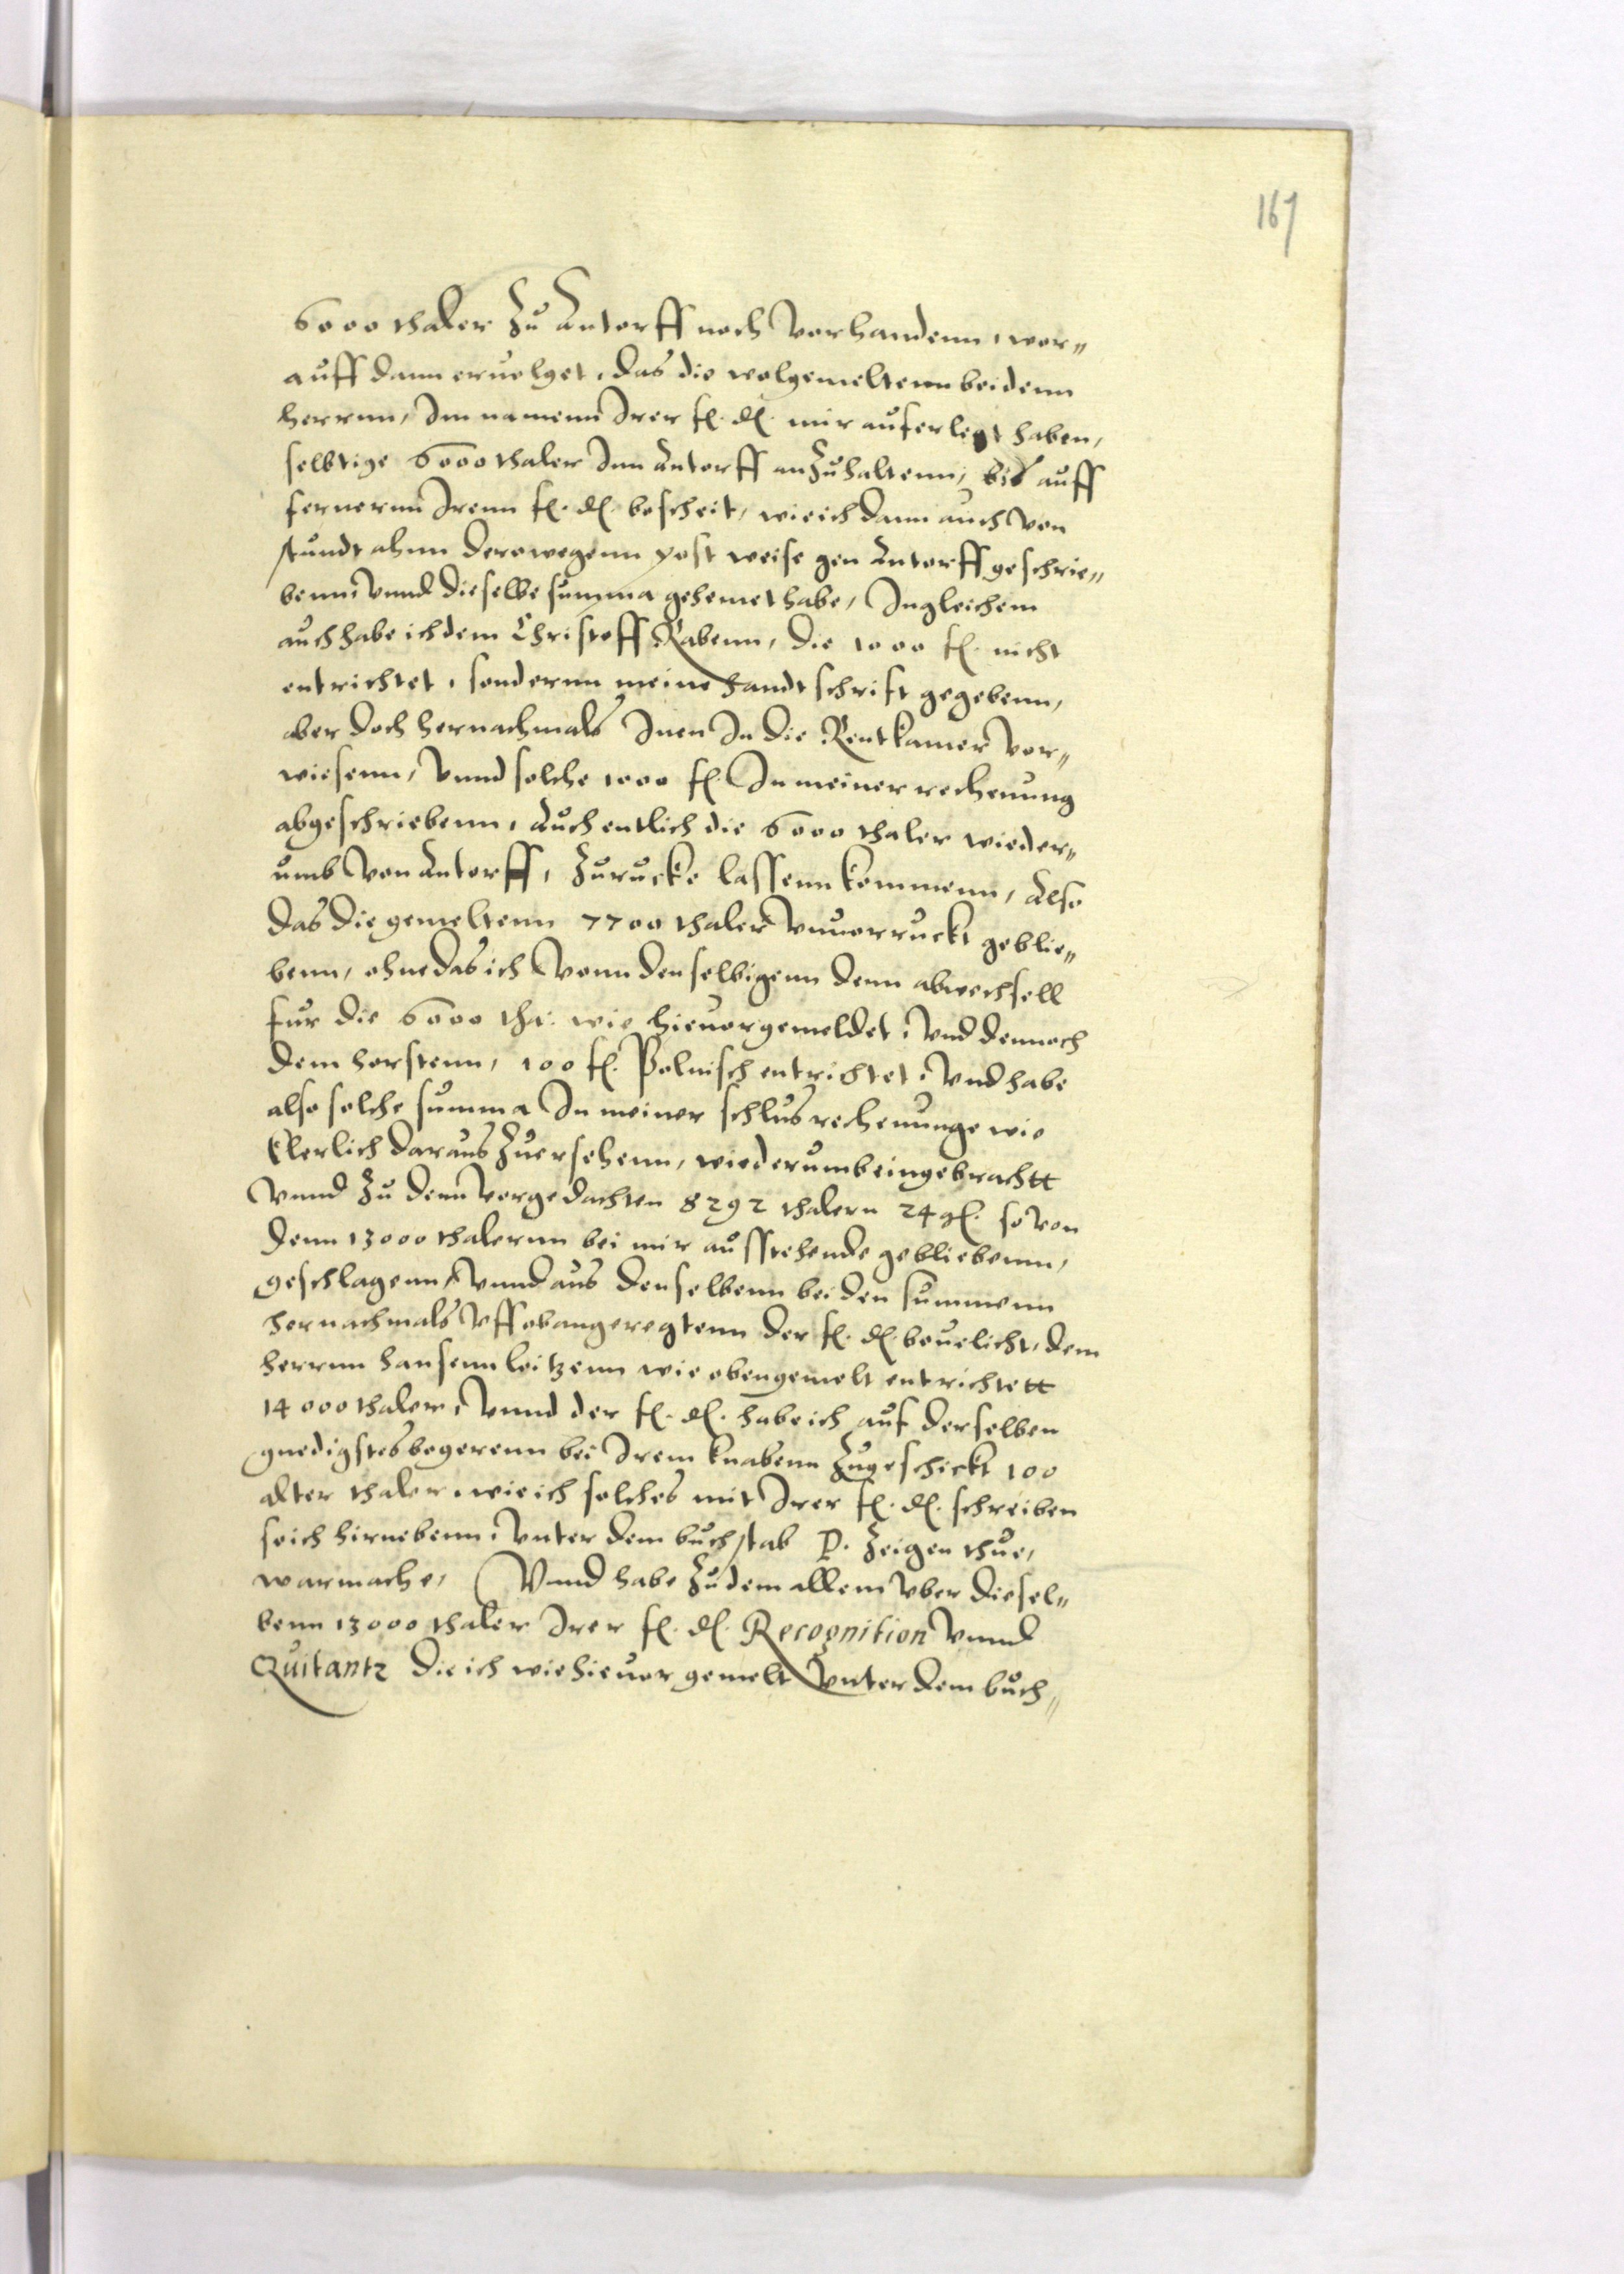 167
6000 thaler Zu Antorff noch Vorhandenn, wor„
auff dann eruolget, das die wolgemeltenn beidenn
herrnn, Im namenn Irer f. d. mir auferlegt haben,
selbtige 6000 thaler Inn Antorff anZuhaltenn, bis auff
fernernn Irenn f. d. bescheit, wie ich dann auch von
stundt ahnn derowegenn post weise gen Antorff geschrie„
benn, Vnnd dieselbe summa gehemet habe, Ingleichem
auch habe ich dem Christoff Rabenn, die 1000 fl. nicht
entrichtet, sondernn meine handtschrift gegebenn,
aber doch hernachmals Inen In die Rentkamer Vor„
wiesenn, Vnnd solche 1000 fl. In meiner rechenung
abgeschriebenn, Auch entlich die 6000 thaler wieder„
umb Von Antorff, Zurucke lassenn kommenn, Also
das die gemeltenn 7700 thaler Vnuorruckt geblie„
benn, ohne das ich Vonn denselbigenn denn abwechsell
fur die 6000 tha: wie hieuorgemeldet, Vnd dennoch
dem horstenn, 100 fl. Polnisch entrichtet, Vnd habe
also solche summa In meiner schlus rechenunge wie
klerlich daraus Zuersehenn, wiederumb eingebrachtt
Vnnd Zu denn Vorgedachten 8292 thalern 24 gl. so von
denn 13000 thalernn bei mir ausstehende gebliebenn,
geschlagenn, Vnnd aus denselbenn beiden summenn
hernachmals Vff obangeregtenn der f. d. beuelicht, dem
herrnn hansenn leitzenn wie obengemelt entrichtett
14000 thaler, Vnnd der f. d. habe ich auf derselben
gnedigstes begerenn bei Irem knabenn Zugeschickt 100
alter thaler, wie ich solches mit Irer f. d. schreiben
so ich hirnebenn, Vnter dem buchstab P. Zeigen thue,
warmache, Vnnd habe Zu dem allem Vber diesel„
benn 13000 thaler Irer f. d. Recognition Vnnd
Quitantz die ich wie hieuor gemelt Vnter dem buch„